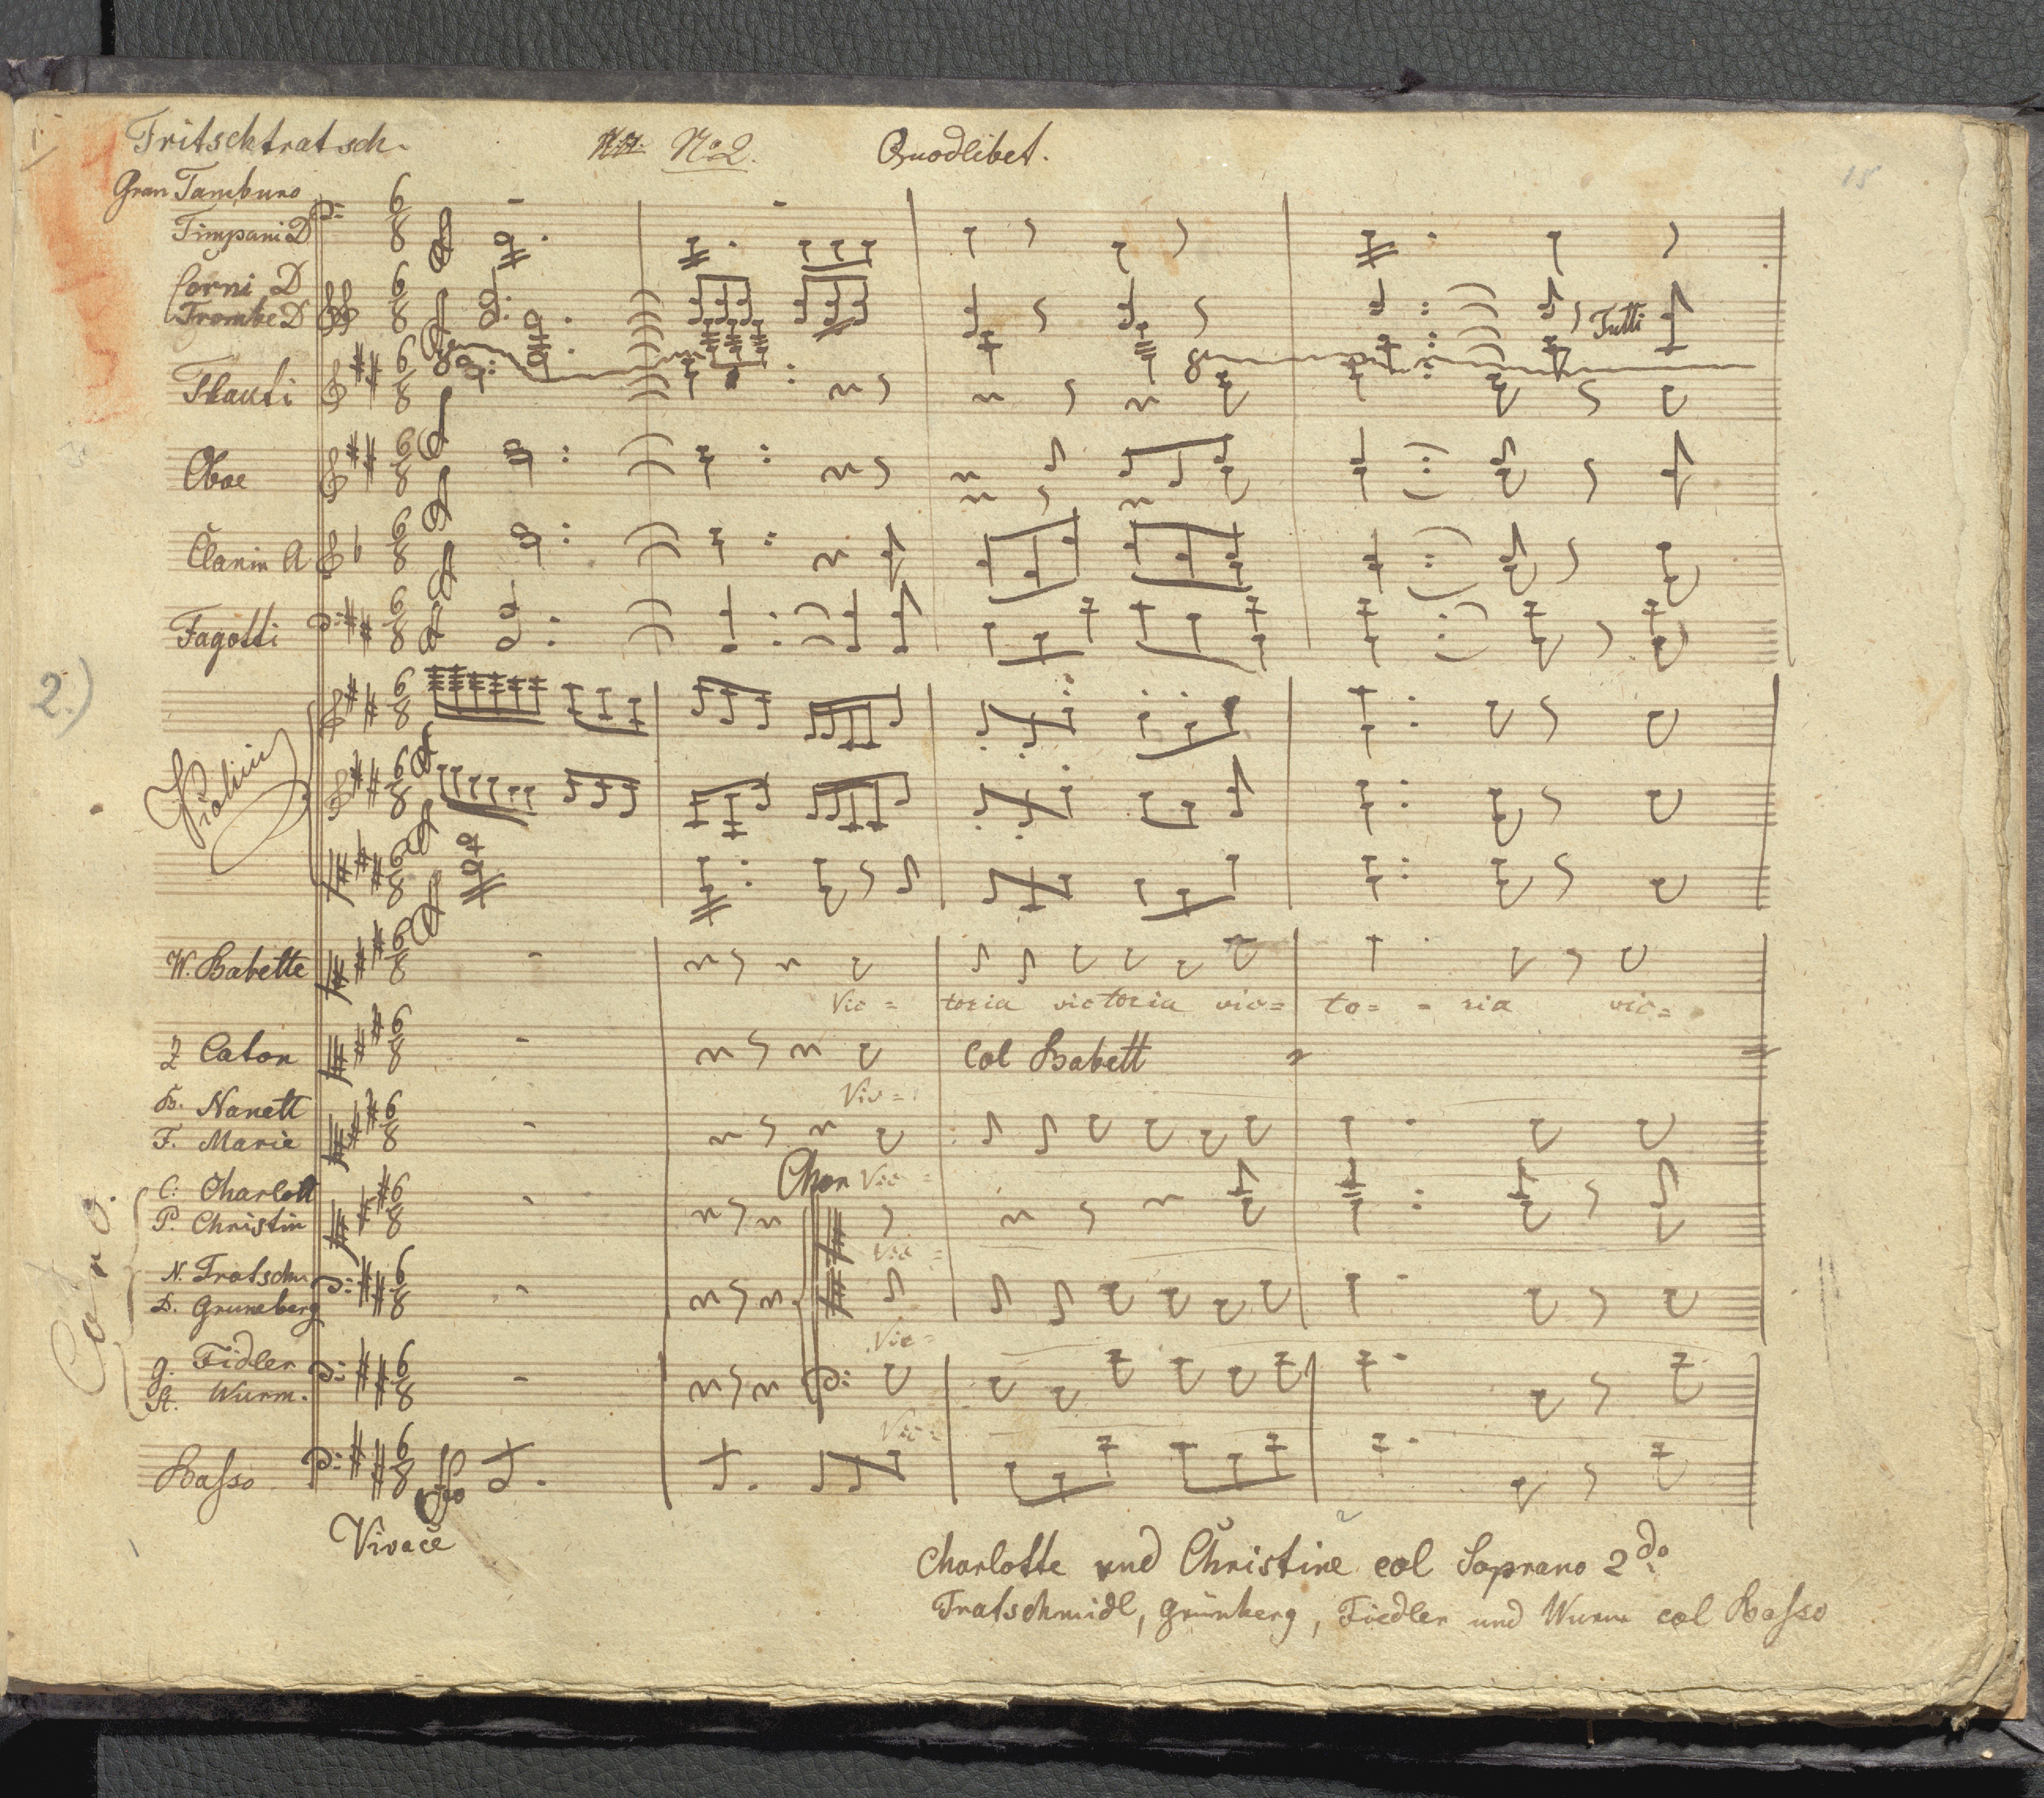 Tritschtratsch. No 2. Quodlibet.
15
Gran Tamburo
Timpani D
Corni D
Trombe D
Tutti
Flauti
Oboe
Clarin A
Fagotti
2.)
Violini
W. Babette
Vic= toria victoria vic= to= = ria vic=
Z Caton
Col Babett
Vic=
B. Nanett
F. Marie
Chor Vic=
C: Charlott
P. Christin
Vic=
N. Tratschm
D. Gruneberg
Vic=
g. Fidler
St. Wurm.
Vic=
Coro.
Basso
Vivace
Charlotte und Christine col Soprano 2do
Tratschmidl, Grünberg, Fiedler und Wurm col Basso